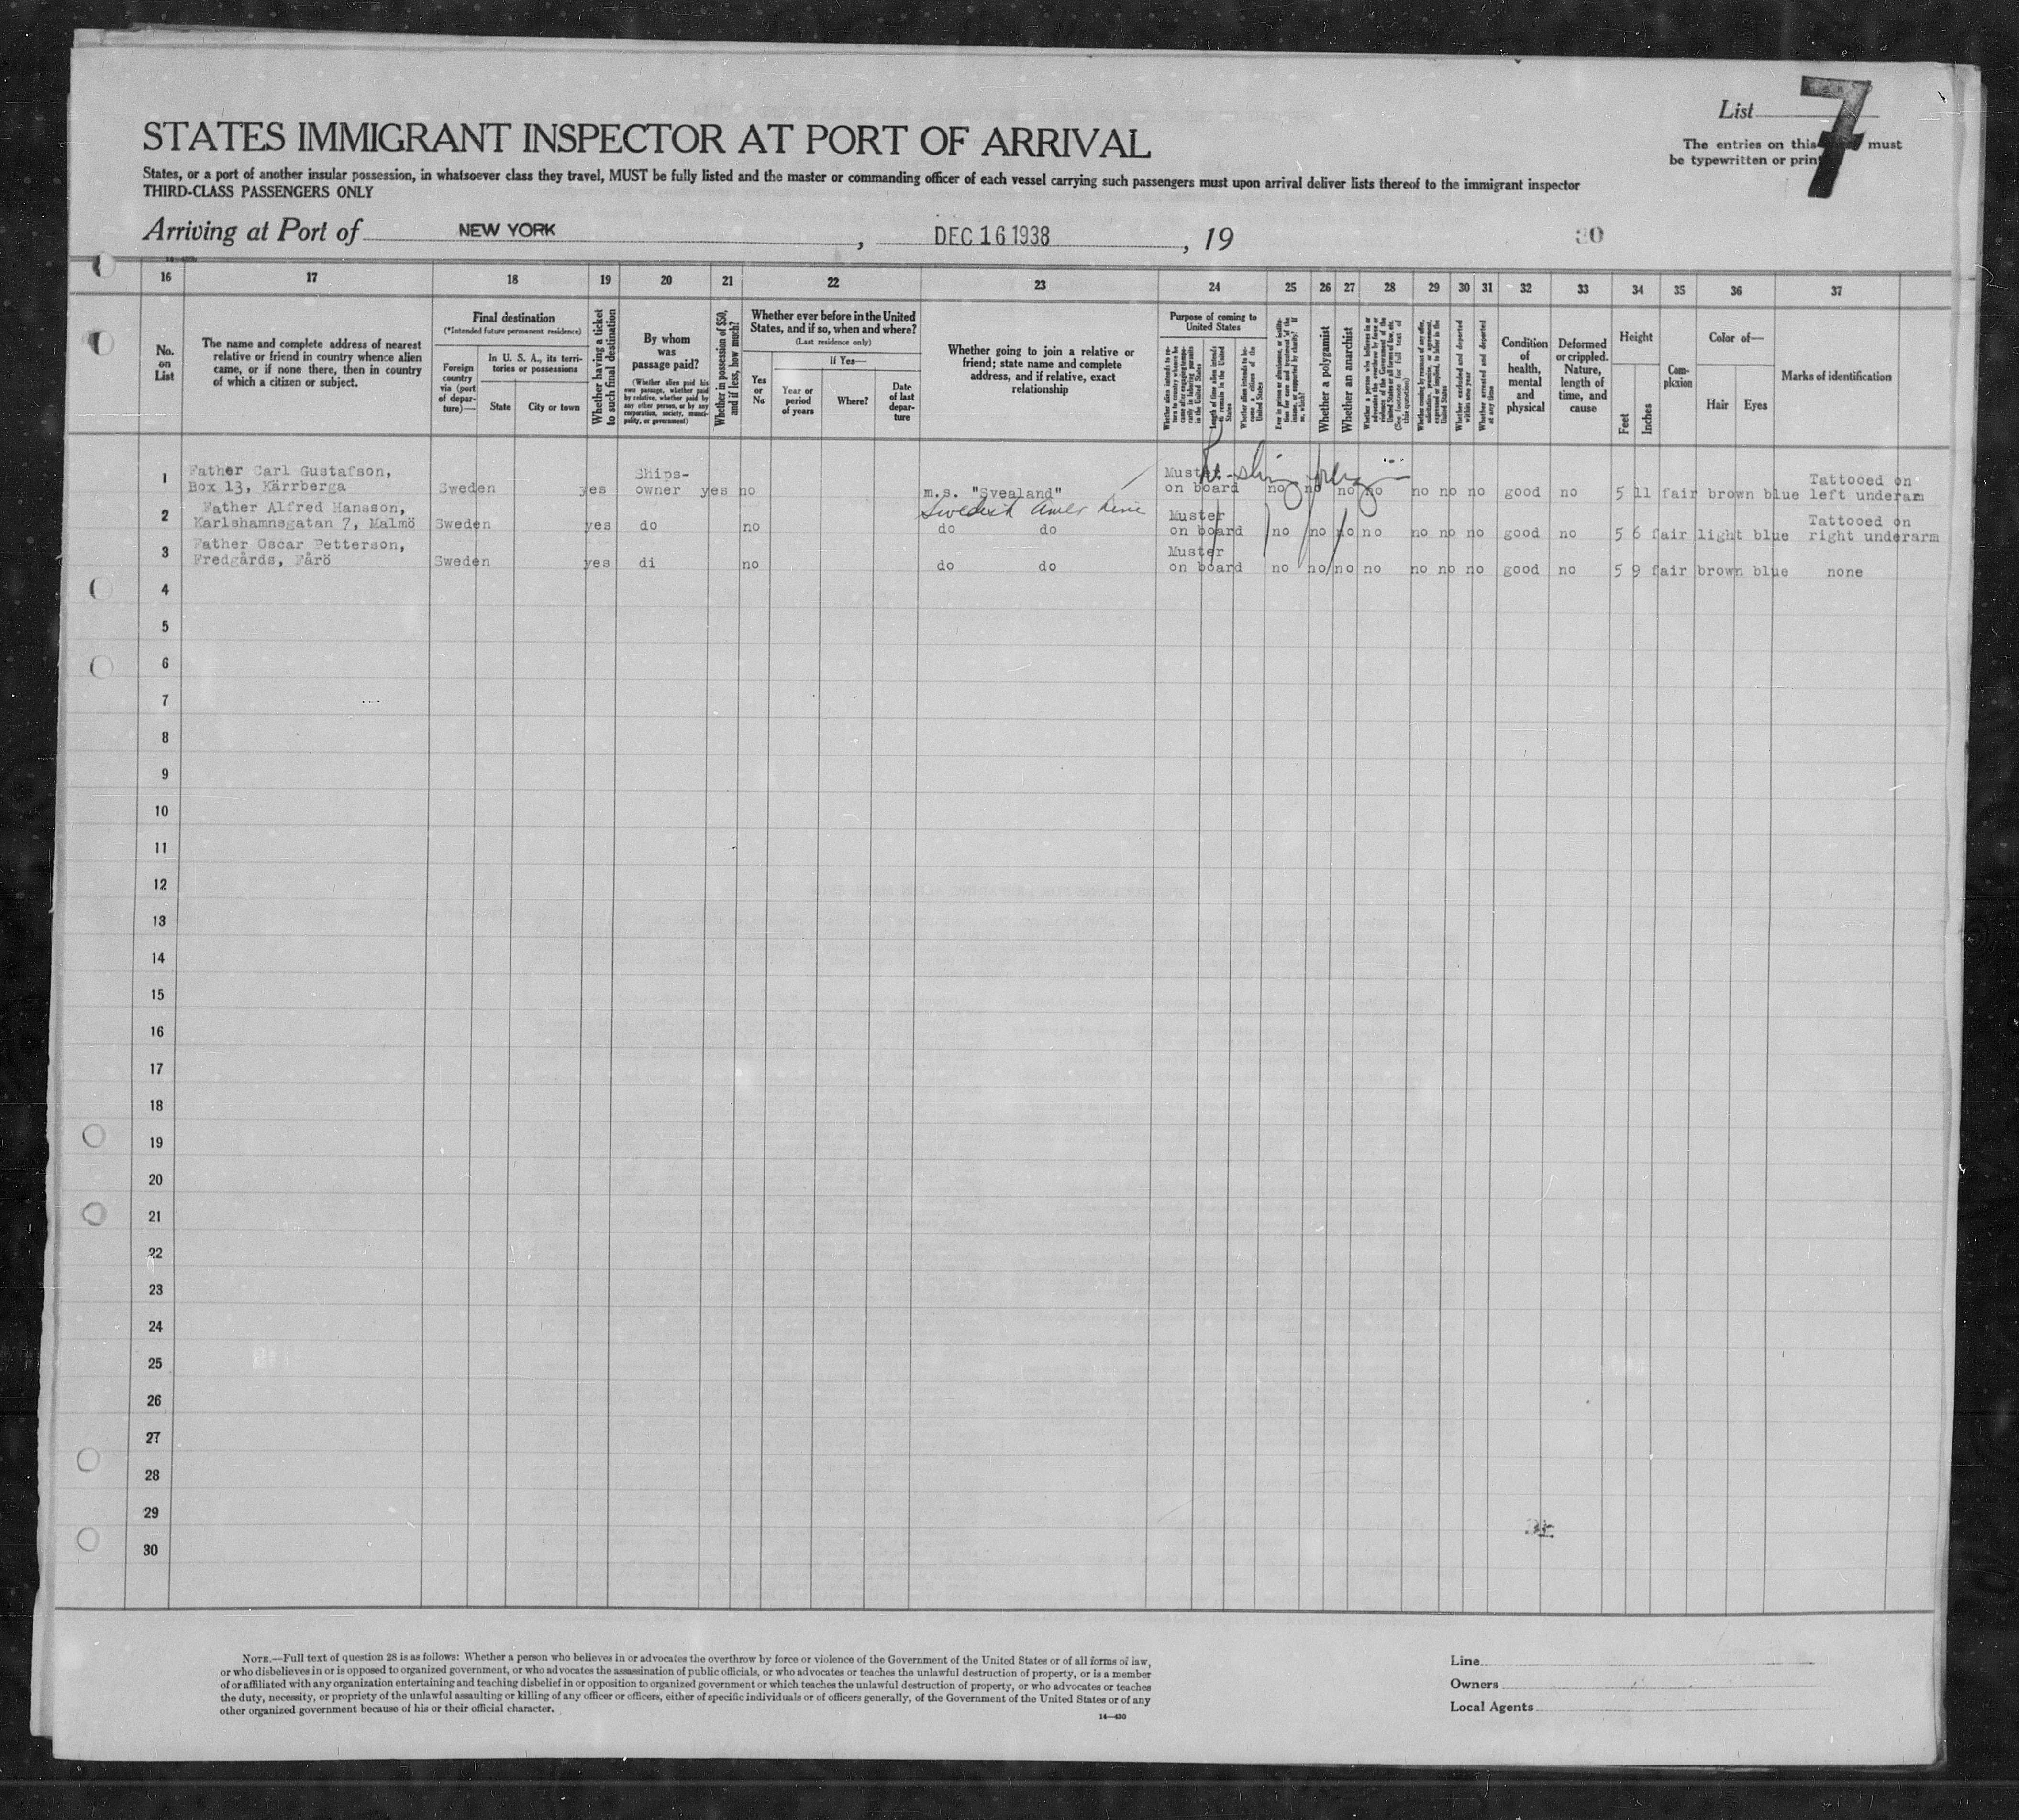 List 7
STATES IMMIGRANT INSPECTOR AT PORT OF ARRIVAL
The entries on this must
be typewritten or print
States, or a port of another insular possession, in whatsoever class they travel, MUST be fully listed and the master or commanding officer of each vessel carrying such passengers must upon arrival deliver lists thereof to the immigrant inspector
THIRD-CLASS PASSENGERS ONLY
Arriving at Port of NEW YORK , DEC 16 1938 , 19
30
16 17 18 19 20 21 22 23 24 25 26 27 28 29 30 31 32 33 34 35 36 37
No.
on
List
The name and complete address of nearest
relative or friend in country whence alien
came, or if none there, then in country
of which a citizen or subject.
Final destination
(*Intended future permanent residence)
Foreign
country
via (port
of depar-
ture)—
In U. S. A., its terri-
tories or possessions
State
City or town
Whether having a ticket
to such final destination
By whom
was
passage paid?
(Whether alien paid his
own passage, whether paid
by relative, whether paid by
any other person, or by any
corporation, society, munici-
pality, or government)
Whether in possession of $50,
and if less, how much?
Whether ever before in the United
States, and if so, when and where?
(Last residence only)
Yes
or
No.
If Yes—
Year or
period
of years
Where?
Date
of last
depar-
ture
Whether going to join a relative or
friend; state name and complete
address, and if relative, exact
relationship
Purpose of coming to
United States
Whether alien intends to re-
turn to country whence he
came after engaging tempo-
rarily in laboring pursuits
in the United States
Length of time alien intends
to remain in the United
States
Whether alien intends to be-
come a citizen of the
United States
Whether a polygamist
Whether an anarchist
Whether a person who believes in or
advocates the overthrow by force or
violence of the Government of the
United States or all forms of law, etc.
(See footnote for full text of
this question)
Whether coming by reason of any offer,
solicitation, promise, or agreement,
expressed or implied, to labor in the
United States
Whether excluded and deported
within one year
Whether arrested and deported
at any time
Condition
of
health,
mental
and
physical
Deformed
or crippled.
Nature,
length of
time, and
cause
Height
Feet
Inches
Com-
plexion
Color of—
Hair
Eyes
Marks of identification
1 Father Carl Gustafson,
Box 13, Kärrberga Sweden yes Ships-
owner yes no m.s. "Svealand" Muster
on board no no no no no no no good no 5 11 fair brown blue Tattooed on
left underarm
Swedish Amer Line
2 Father Alfred Hansson,
Karlshamnsgatan 7, Malmö Sweden yes do no do do Muster
on board no no no no no no no good no 5 6 fair light blue Tattooed on
right underarm
3 Father Oscar Petterson,
Fredgårds, Fårö Sweden yes di no do do Muster
on board no no no no no no no good no 5 9 fair brown blue none
4
5
6
7
8
9
10
11
12
13
14
15
16
17
18
19
20
21
22
23
24
25
26
27
28
29
30
NOTE.—Full text of question 28 is as follows: Whether a person who believes in or advocates the overthrow by force or violence of the Government of the United States or of all forms of law,
or who disbelieves in or is opposed to organized government, or who advocates the assassination of public officials, or who advocates or teaches the unlawful destruction of property, or is a member
of or affiliated with any organization entertaining and teaching disbelief in or opposition to organized government or which teaches the unlawful destruction of property, or who advocates or teaches
the duty, necessity, or propriety of the unlawful assaulting or killing of any officer or officers, either of specific individuals or of officers generally, of the Government of the United States or of any
other organized government because of his or their official character.
14—430
Line
Owners
Local Agents